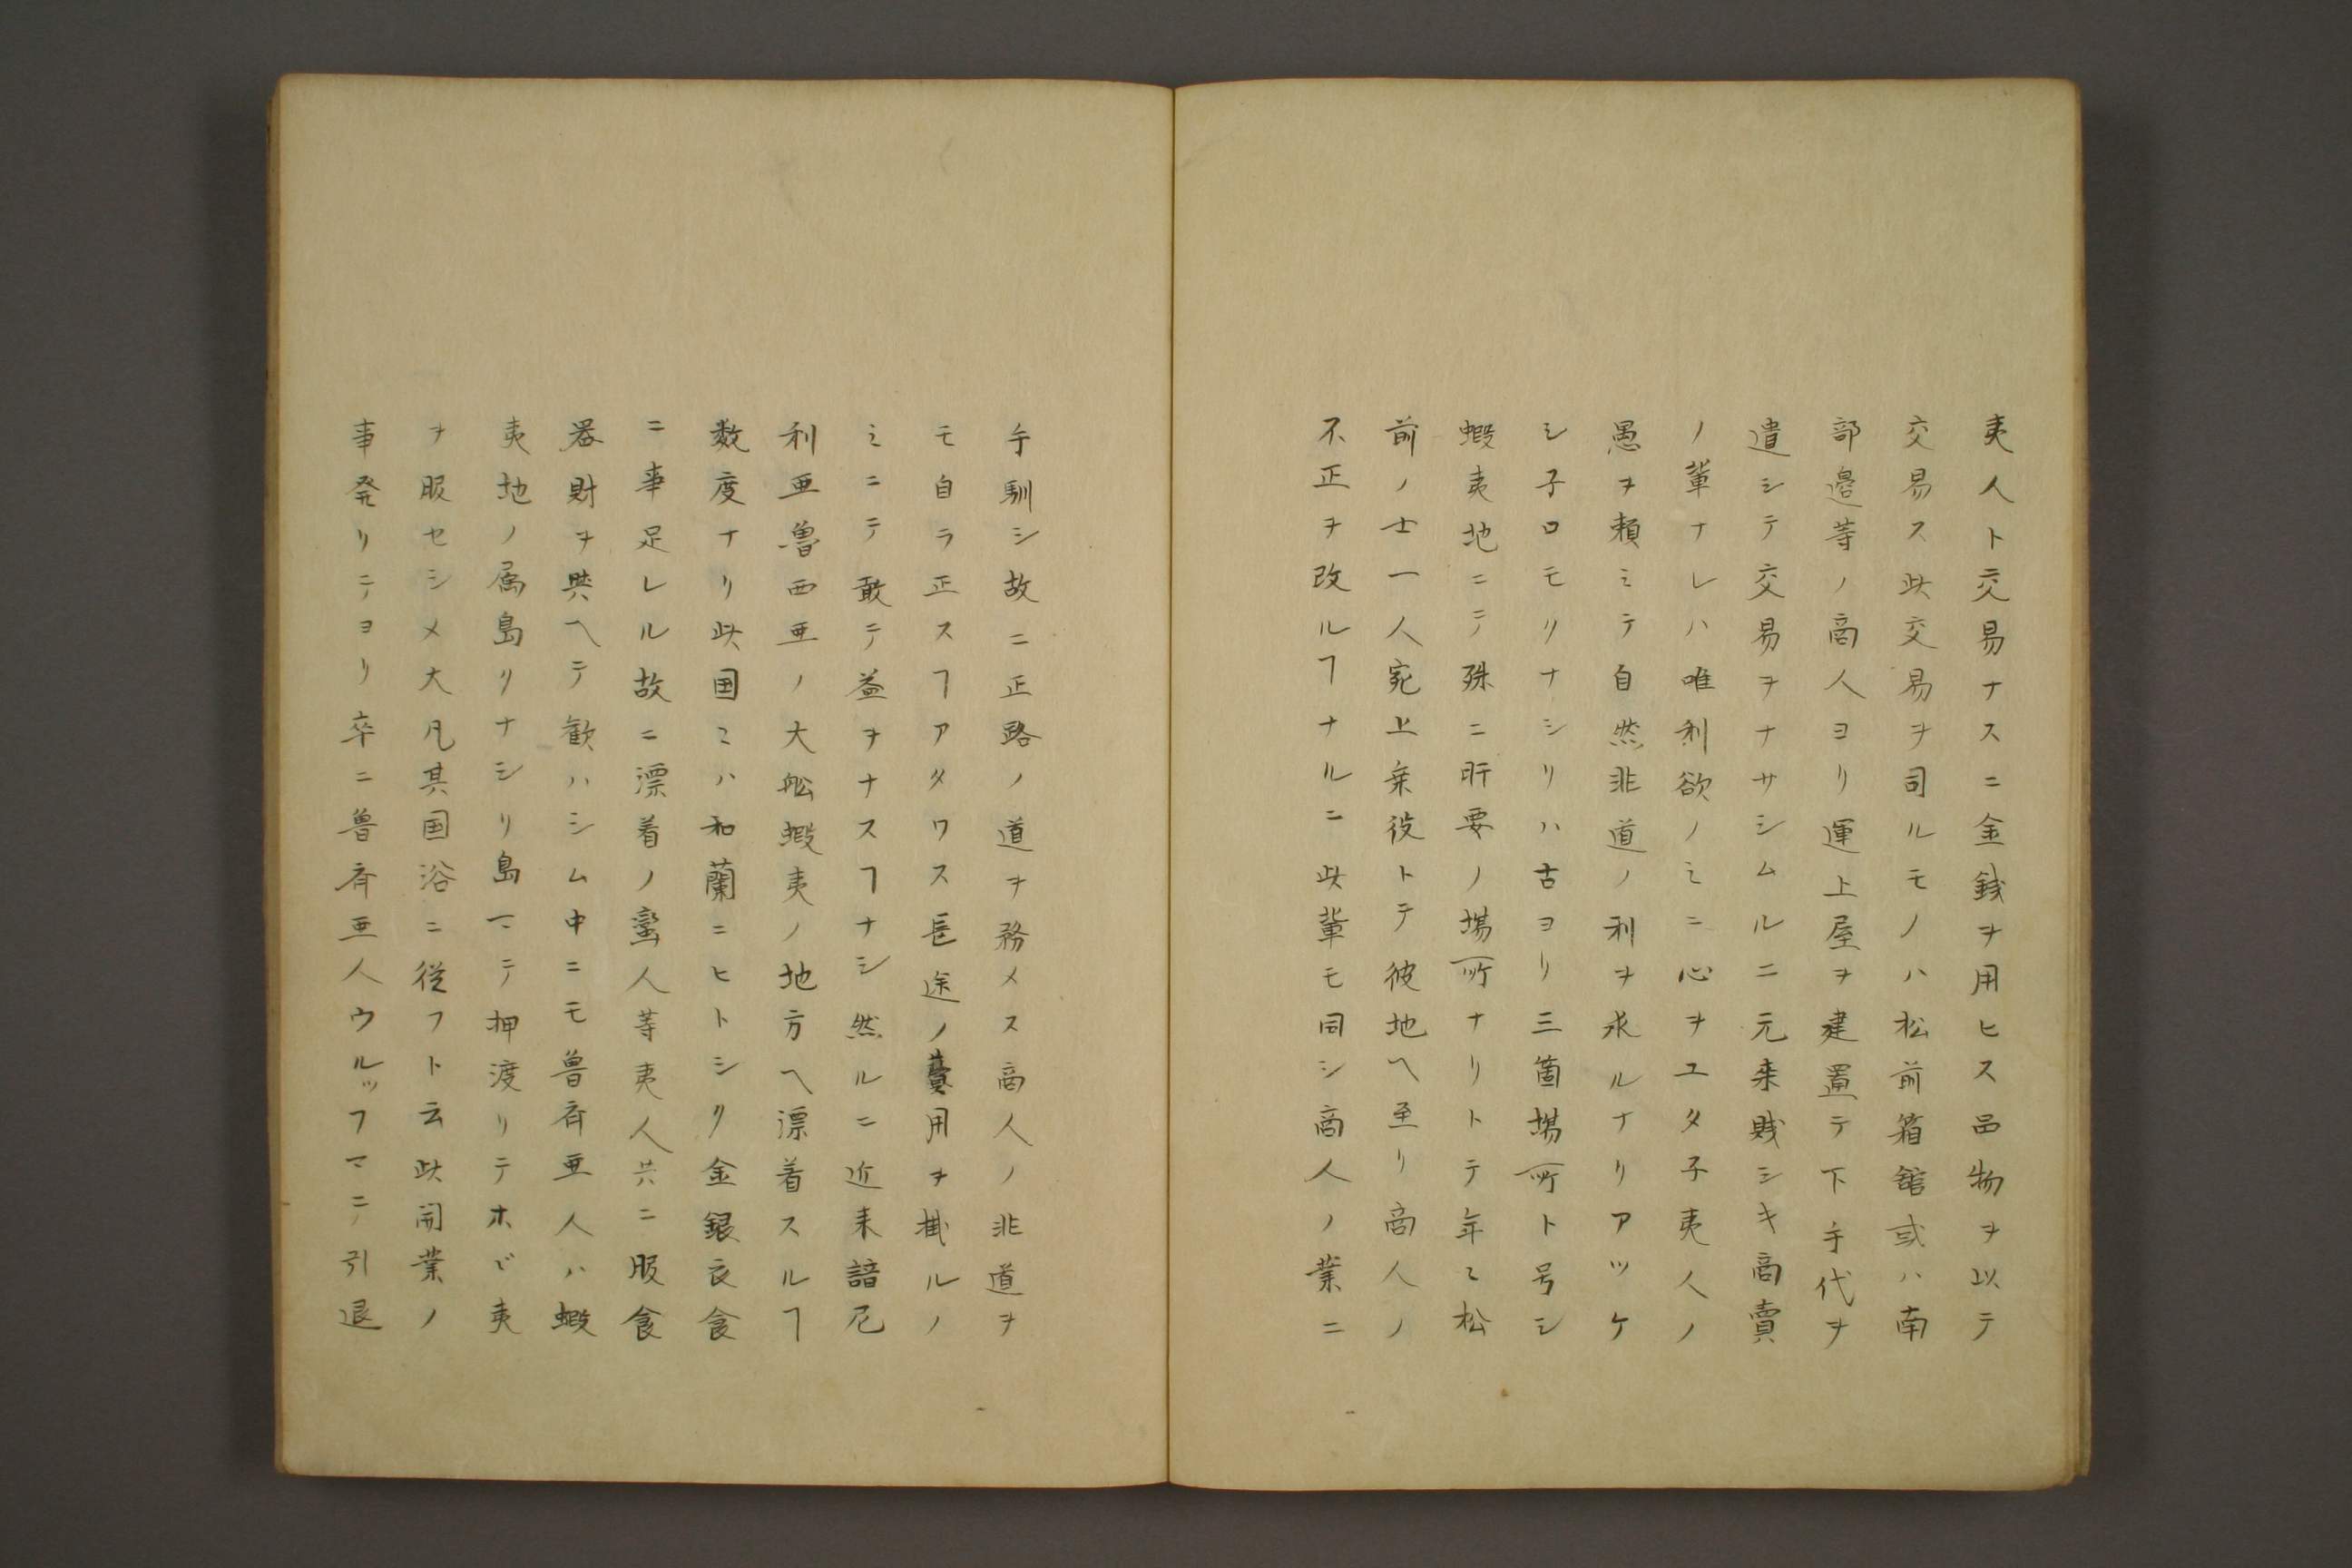 夷人ト交易ナスニ金銭ヲ用ヒス品物ヲ以テ
交易ス此交易ヲ司ルモノハ松前箱舘或ハ南
部邉等ノ商人ヨリ運上屋ヲ建置テ下手代ヲ
遣シテ交易ヲナサシムルニ元来賎シキ商賣
ノ輩ナレハ唯利欲ノミニ心ヲユタ子夷人ノ
愚ヲ頼ミテ自然非道ノ利ヲ求ルナリアツケ
シ子ロモリナシリハ古ヨリ三箇場所ト号シ
蝦夷地ニテ殊ニ肝要ノ場所ナリトテ年〻松
前ノ士一人宛上乗役トテ彼地ヘ至リ商人ノ
不正ヲ改ルヿナルニ此輩モ同シ商人ノ業ニ
手馴シ故ニ正路ノ道ヲ務メス商人ノ非道ヲ
モ自ラ正スヿアタワス長途ノ費用ヲ掛ルノ
ミニテ敢テ益ヲナスヿナシ然ルニ近来諳厄
利亜魯西亜ノ大舩蝦夷ノ地方ヘ漂着スルヿ
数度ナリ此国〻ハ和蘭ニヒトシク金銀衣食
ニ事足レル故ニ漂着ノ蛮人等夷人共ニ服食
器財ヲ與ヘテ歓ハシム中ニモ魯斉亜人ハ蝦
夷地ノ属島クナシリ島マテ押渡リテホヾ夷
ヲ服セシメ大凡其国俗ニ従フト云此開業ノ
事発リテヨリ卒ニ魯斉亜人ウルッフマテ引退